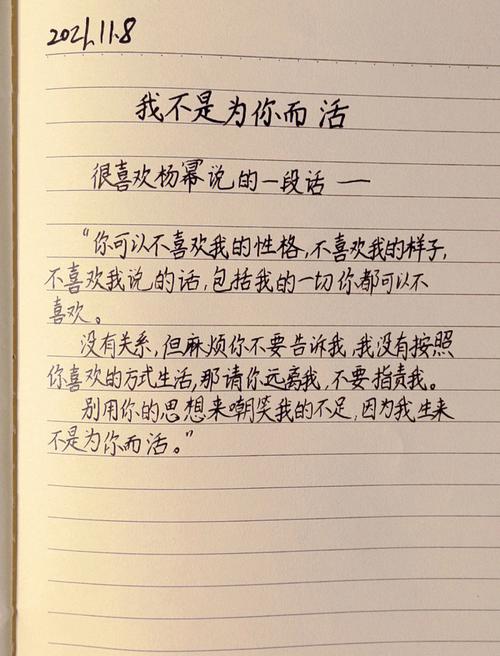 2021.11.8
我不是为你而活
很喜欢杨幂说的一段话 ——
“你可以不喜欢我的性格,不喜欢我的样子,
不喜欢我说的话,包括我的一切你都可以不
喜欢。
没有关系,但麻烦你不要告诉我,我没有按照
你喜欢的方式生活,那请你远离我,不要指责我。
别用你的思想来嘲笑我的不足,因为我生来
不是为你而活。”